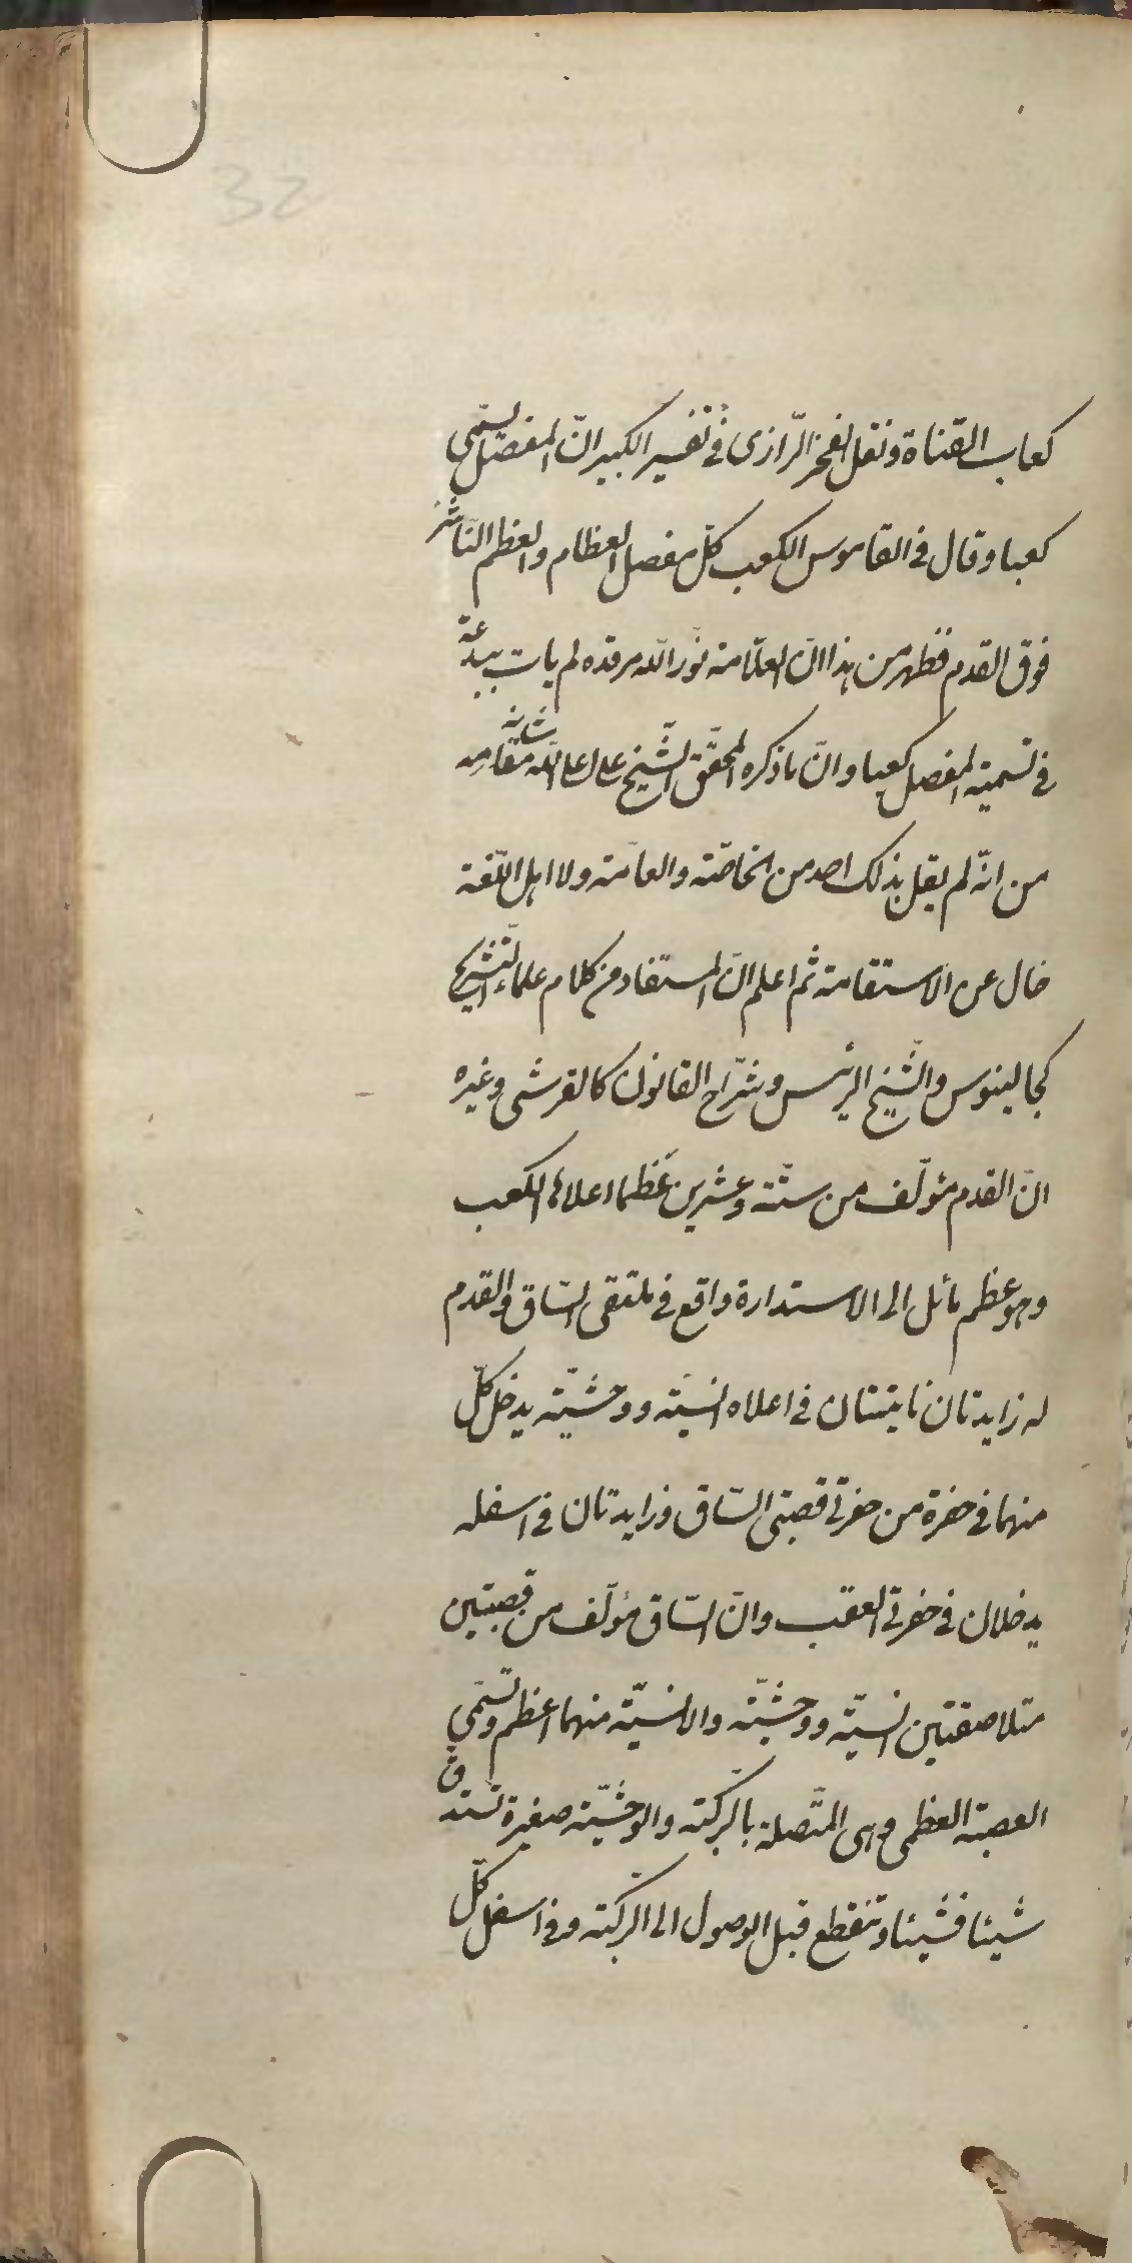 32
كعاب القناة ونقل الفخر الرّازى فى تفسير الكبير انّ المفصل يسمّى
كعبا وقال فى القاموس الكعب كلّ مفصل العظام والعظم النّاشز
فوق القدم فظهر من هذا انّ العلّامة نوّر اللّه مرقده لم يات ببدعة
فى تسمية المفصل كعبا وانّ ما ذكره المحقّق الشّيخ على اعلى اللّه مقامه
من انّه لم يقل بذلك احد من الخاصّة والعامّة ولا اهل اللّغة
خال عن الاستقامة ثم اعلم انّ المستفاد من كلام علماء التّشريح
كجالينوس والشّيخ الرئيس وشرّاح القانون كالقرشى وغيره
انّ القدم مؤلّف من ستّة وعشرين عَظما اعلاها الكعب
وهو عظم مائل الى الاستدارة واقع فى ملتقى السّاق والقدم
له زايدتان نابتتان فى اعلاه انسيّة ووحشيّة يدخل كلّ
منهما فى حفرة من حفرتى قصبتى السّاق وزايدتان فى اسفله
يدخلان فى حفرتى العقب وانّ السّاق مؤلّف من قصبتين
متلاصقتين انسيّة ووحشيّة والانسيّة منهما اعظم وتسمّى
القصبة العظمى وهى المتّصلة بالركبة والوحشيّة صغيرة تستدقّ
شيئا فشيئا وتنقطع قبل الوصول الى الركبة وفى اسفل كلّ